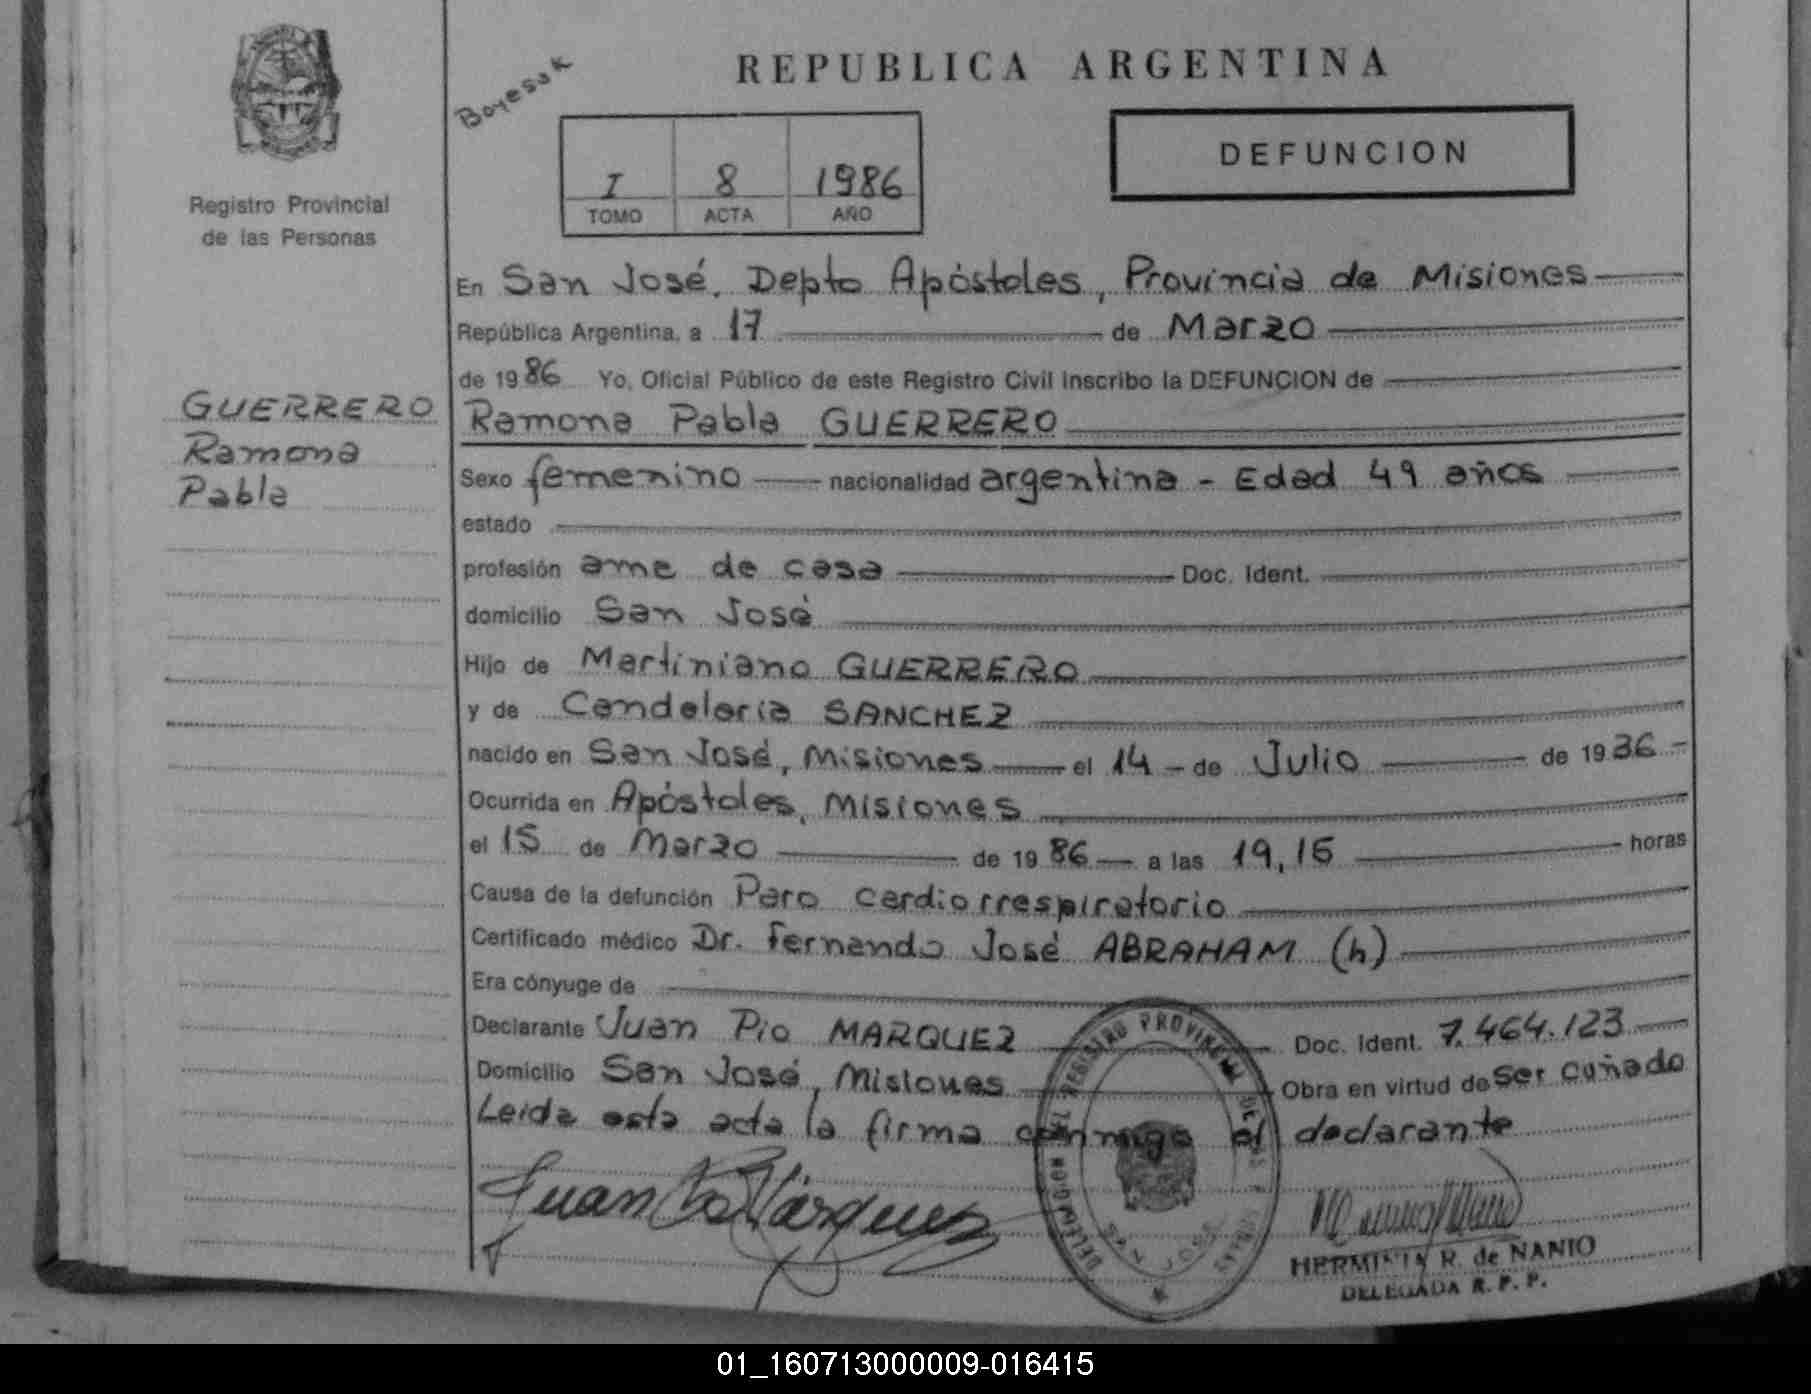 REPUBLICA ARGENTINA
Bayesak
DEFUNCION
I 8 1986
TOMO ACTA AÑO
Registro Provincial
de las Personas
GUERRERO
Ramona
Pabla
En San José, Depto Apóstoles, Provincia de Misiones
República Argentina, a 17 de Marzo
de 1986 Yo, Oficial Público de este Registro Civil inscribo la DEFUNCION de
Ramona Pabla GUERRERO
Sexo femenino nacionalidad argentina - Edad 49 años
estado
profesión ama de casa Doc. Ident.
domicilio San José
Hijo de Martiniano GUERRERO
y de Candelaria SANCHEZ
nacido en San José, Misiones el 14 - de Julio de 1936 -
Ocurrida en Apóstoles, Misiones
el 15 de Marzo de 1986 a las 19,15 horas
Causa de la defunción Paro cardiorrespiratorio
Certificado médico Dr. Fernando José ABRAHAM (h)
Era cónyuge de
Declarante Juan Pio MARQUEZ Doc. Ident. 7.464.123
Domicilio San José, Misiones Obra en virtud de ser cuñado
Leida esta acta la firma conmigo el declarante
Juan Pio Márquez
REGISTRO PROVINCIAL DE LAS
SAN JOSE
HERMINIA R. de NANIO
DELEGADA R. P. P.
01_160713000009-016415